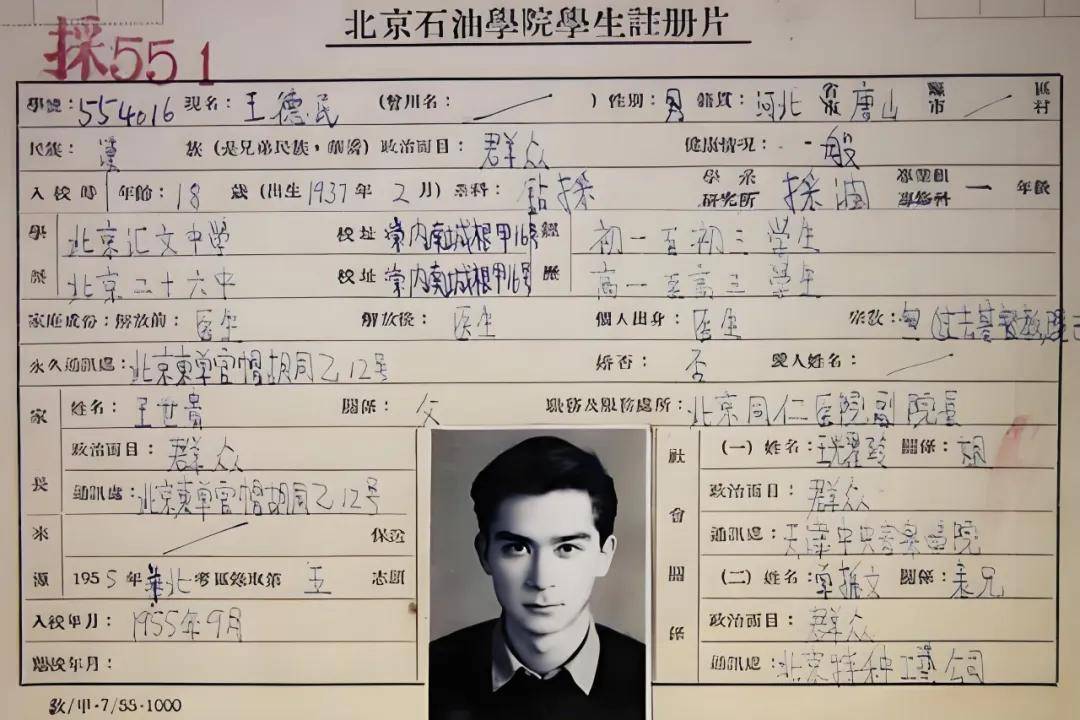 北京石油學院學生註册片
採55 1
學號：554016 現名：王德民 （曾用名： ／ ）性別：男 籍貫：河北 省 唐山 縣市 ／ 區村
民族：漢 族（是兄弟民族，華僑）政治面目：群众 健康情况：一般
入校時 年齡：18 歲（出生1937年 2 月）系科：鉆採 學系 研究所 採油 專業 專修科 一 年級
學 北京汇文中学 校址 崇内南城根甲16号 經 初一至初三学生
歷 北京二十六中 校址 崇内南城根甲16号 歷 高一至高三学生
家庭成份：解放前：医生 解放後：医生 個人出身：医生 宗教：过去基督教,現己
永久通訊處：北京東单官帽胡同乙12号 婚否：否 愛人姓名：／
家長 姓名：王世貴 關係：父 職務及服務處所：北京同仁医院副院長
政治面目：群众
通訊處：北京東单官帽胡同乙12号
來源 ／ 保送
1955年華北考區錄取第 五 志願
入校年月：1955年9月
離校年月：
社會關係 （一）姓名：關係：
政治面目：群众
通訊處：天津中央音楽学院
（二）姓名：關係：表兄
政治面目：群众
通訊處：北京特种工艺公司
教/甲-7/55-1000